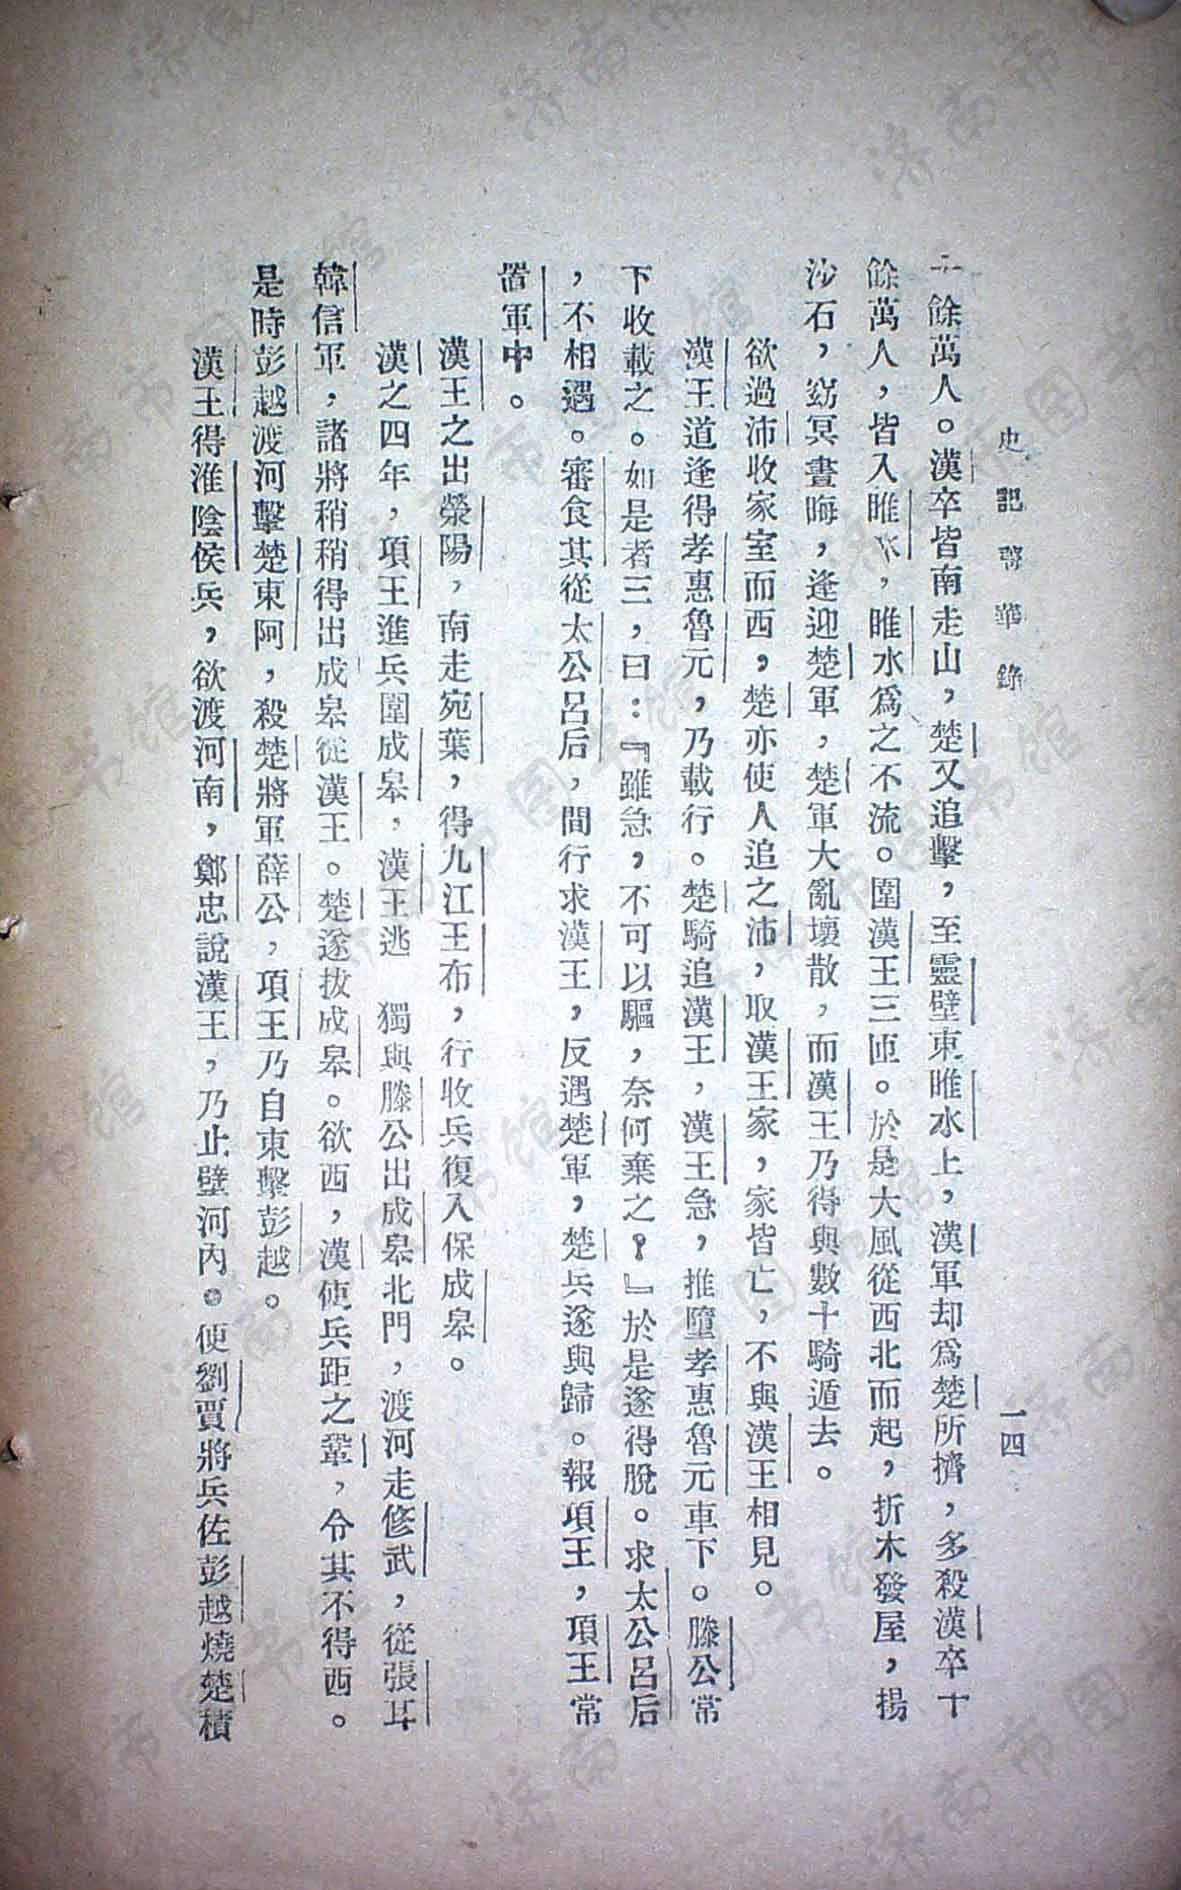 史記菁華錄
一四
十餘萬人。漢卒皆南走山，楚又追擊，至靈壁東睢水上，漢軍却爲楚所擠，多殺漢卒十
餘萬人，皆入睢水，睢水爲之不流。圍漢王三匝。於是大風從西北而起，折木發屋，揚
沙石，窈冥晝晦，逢迎楚軍，楚軍大亂壞散，而漢王乃得與數十騎遁去。
欲過沛收家室而西，楚亦使人追之沛，取漢王家，家皆亡，不與漢王相見。
漢王道逢得孝惠魯元，乃載行。楚騎追漢王，漢王急，推墮孝惠魯元車下。滕公常
下收載之。如是者三，曰：『雖急，不可以驅，奈何棄之？』於是遂得脫。求太公呂后
，不相遇。審食其從太公呂后，間行求漢王，反遇楚軍，楚兵遂與歸。報項王，項王常
置軍中。
漢王之出滎陽，南走宛葉，得九江王布，行收兵復入保成皋。
漢之四年，項王進兵圍成皋，漢王逃 獨與滕公出成皋北門，渡河走修武，從張耳
韓信軍，諸將稍稍得出成皋從漢王。楚遂拔成皋。欲西，漢使兵距之鞏，令其不得西。
是時彭越渡河擊楚東阿，殺楚將軍薛公，項王乃自東擊彭越。
漢王得淮陰侯兵，欲渡河南，鄭忠說漢王，乃止壁河內。使劉賈將兵佐彭越燒楚積